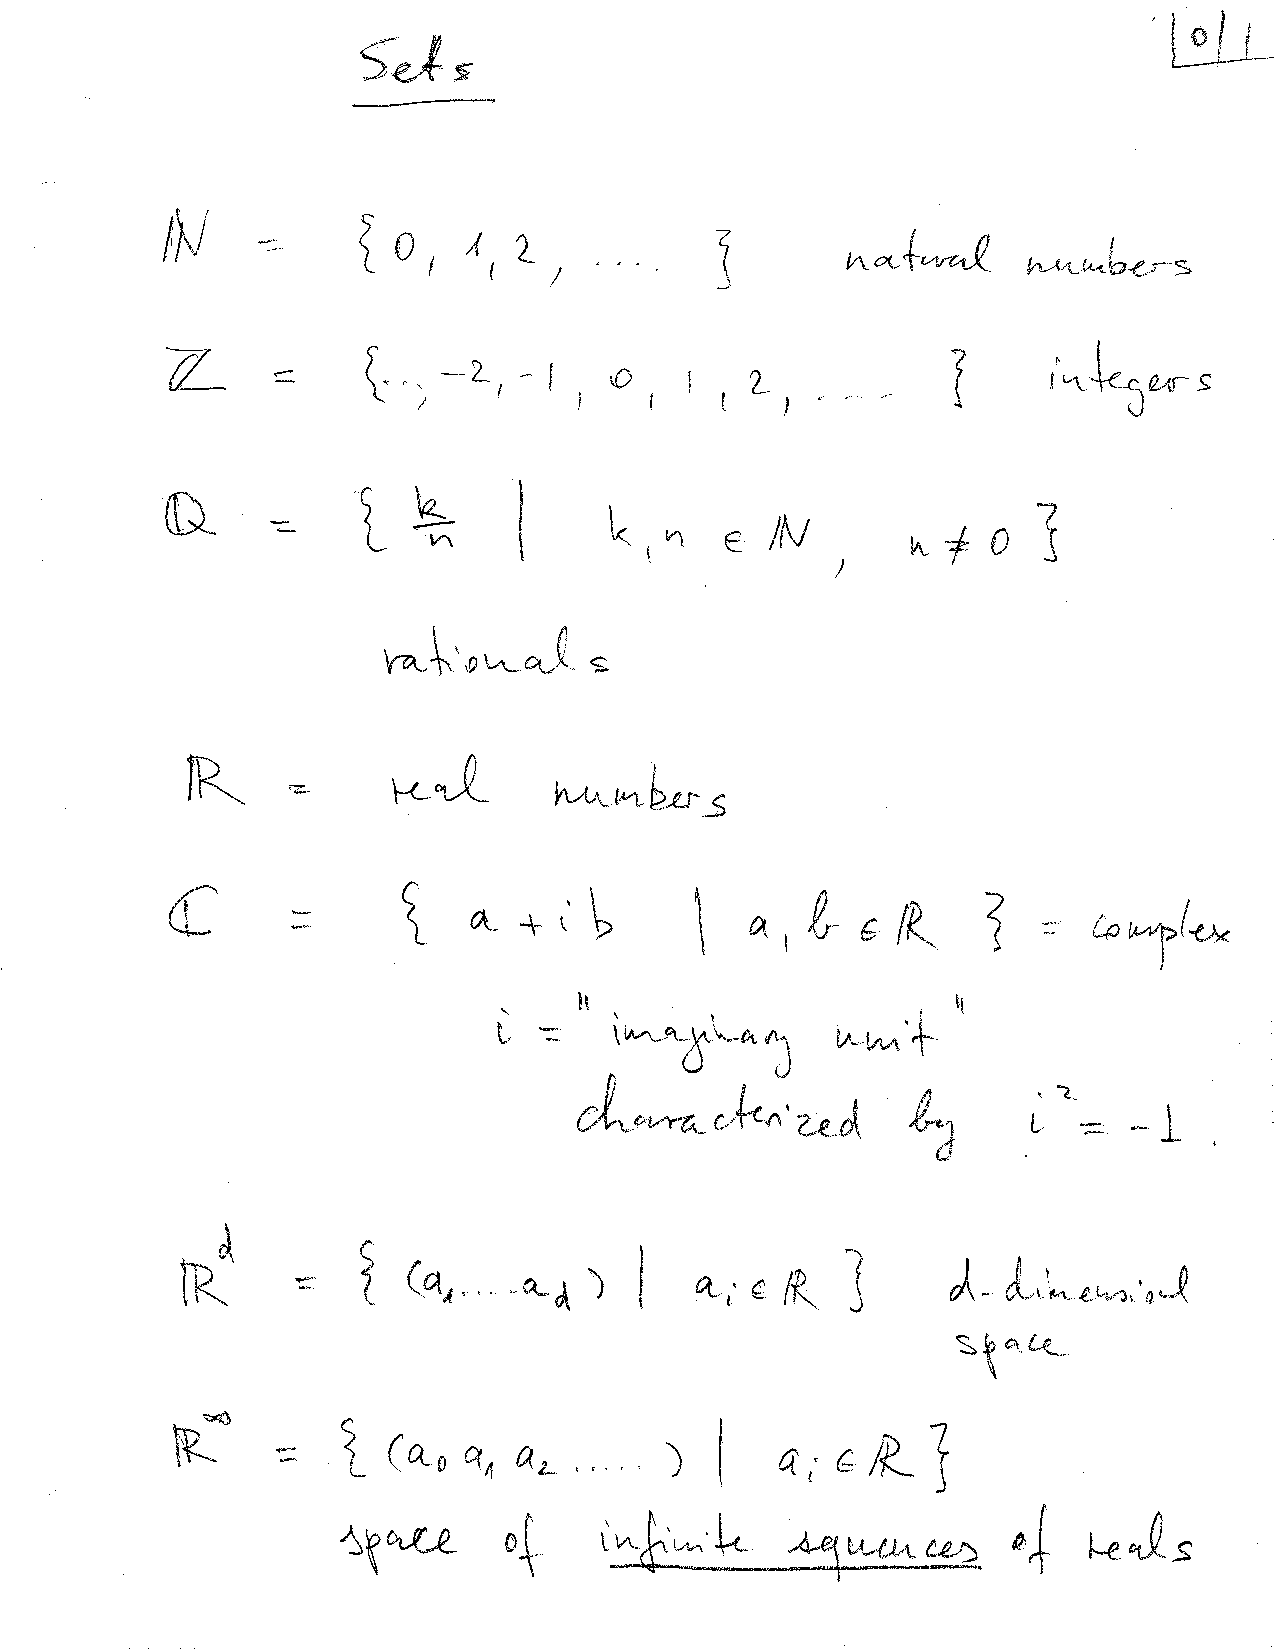 0/1
Sets
ℕ = {0, 1, 2, ....} natural numbers
ℤ = {.., -2, -1, 0, 1, 2, ....} integers
ℚ = { k/n | k, n ∈ ℕ, n ≠ 0 }
rationals
ℝ = real numbers
ℂ = { a + ib | a, b ∈ ℝ } = complex
i = "imaginary unit"
characterized by i² = -1.
ℝᵈ = { (a₁.....a_d) | aᵢ ∈ ℝ } d-dimensional
space
ℝ^∞ = { (a₀ a₁ a₂ .....) | aᵢ ∈ ℝ }
space of infinite sequences of reals